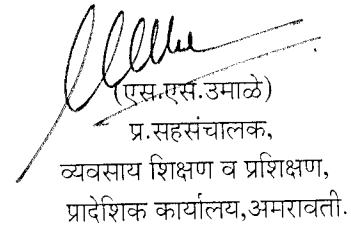 (एस.एस.उमाळे)
प्र.सहसंचालक,
व्यवसाय शिक्षण व प्रशिक्षण,
प्रादेशिक कार्यालय,अमरावती.